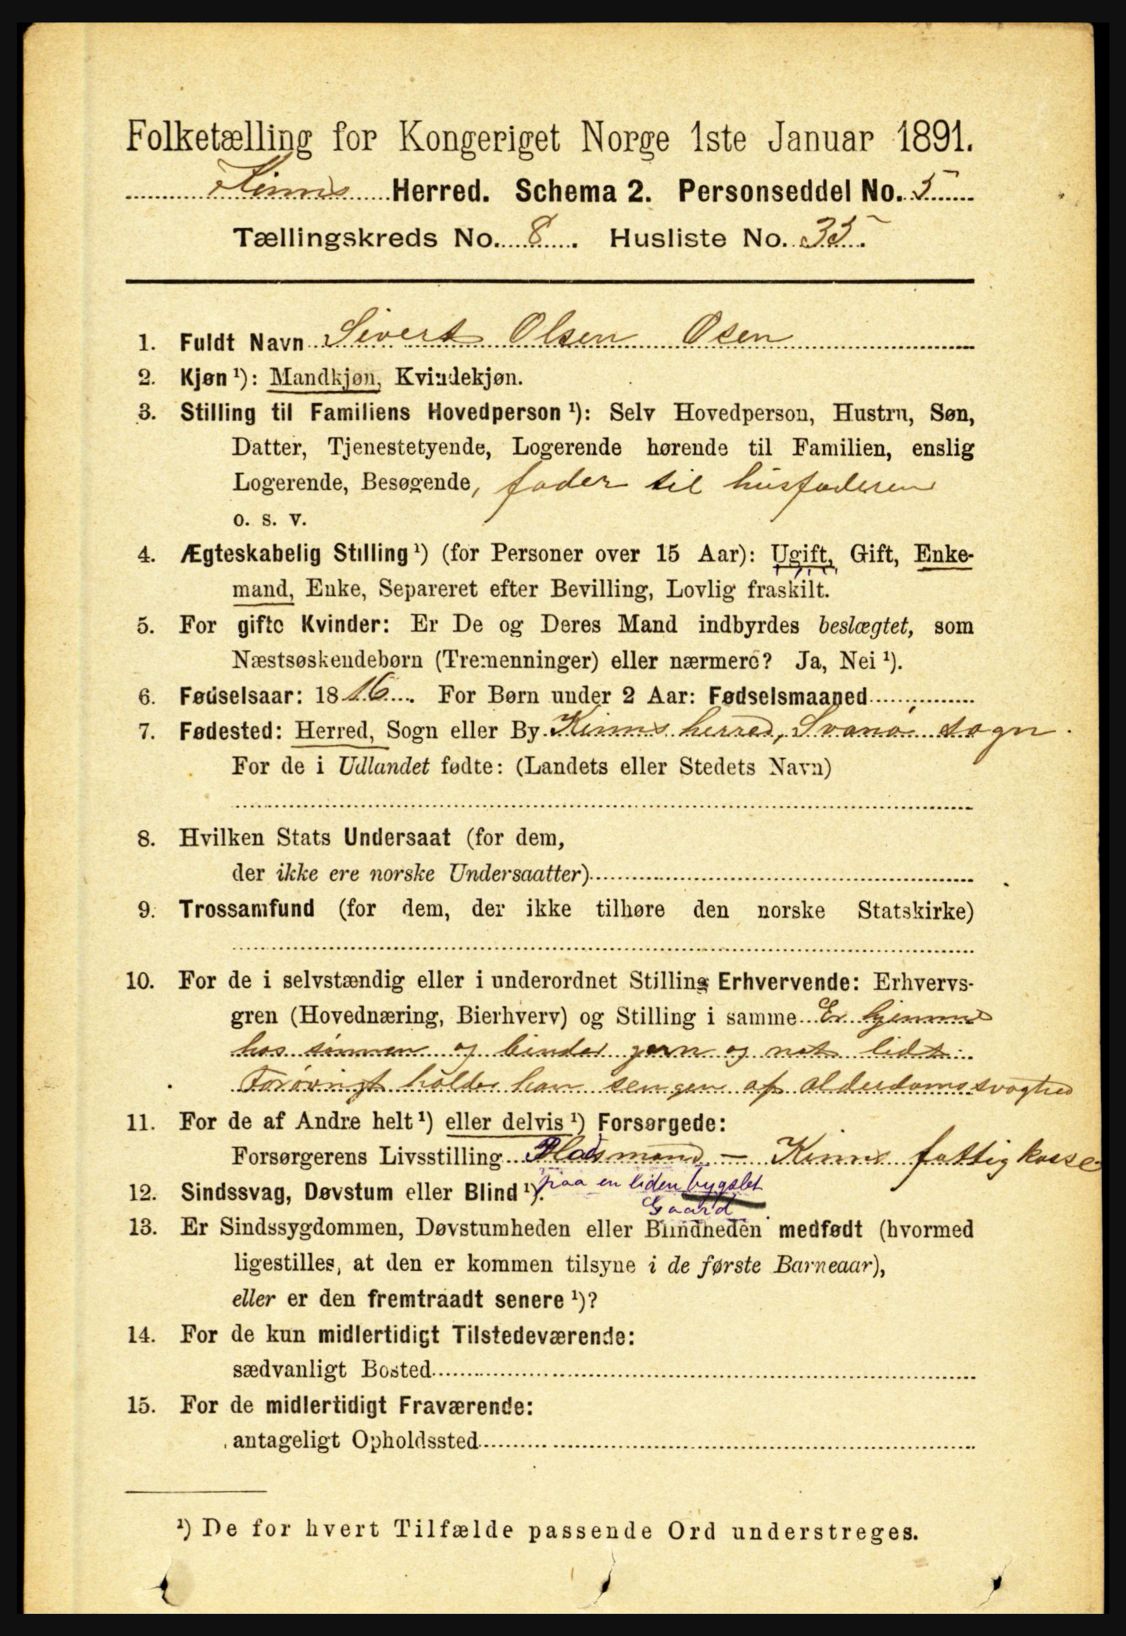 Folketælling for Kongeriget Norge 1ste Januar 1891.
Kinns Herred. Schema 2. Personseddel No. 5
Tællingskreds No. 8. Husliste No. 35.
1. Fuldt Navn Sivert Olsen Osen
2. Kjøn ¹): Mandkjøn, Kvindekjøn.
3. Stilling til Familiens Hovedperson ¹): Selv Hovedperson, Hustru, Søn,
Datter, Tjenestetyende, Logerende hørende til Familien, enslig
Logerende, Besøgende, fader til husfaderen
o. s. v.
4. Ægteskabelig Stilling ¹) (for Personer over 15 Aar): Ugift, Gift, Enke-
mand, Enke, Separeret efter Bevilling, Lovlig fraskilt.
5. For gifte Kvinder: Er De og Deres Mand indbyrdes beslægtet, som
Næstsøskendebørn (Tremenninger) eller nærmere? Ja, Nei ¹).
6. Fødselsaar: 1816. For Børn under 2 Aar: Fødselsmaaned
7. Fødested: Herred, Sogn eller By Kinns herred, Svanø sogn.
For de i Udlandet fødte: (Landets eller Stedets Navn)
8. Hvilken Stats Undersaat (for dem,
der ikke ere norske Undersaatter)
9. Trossamfund (for dem, der ikke tilhøre den norske Statskirke)
10. For de i selvstændig eller i underordnet Stilling Erhvervende: Erhvervs-
gren (Hovednæring, Bierhverv) og Stilling i samme Er hjemme
hos sønnen og binder garn og not lidt
forøvrigt holder han sengen af alderdomssvaghed
11. For de af Andre helt ¹) eller delvis ¹) Forsørgede:
Forsørgerens Livsstilling Pladsmand – Kinns fattigkasse
paa en liden bygslet
12. Sindssvag, Døvstum eller Blind ¹).
Gaard
13. Er Sindssygdommen, Døvstumheden eller Blindheden medfødt (hvormed
ligestilles, at den er kommen tilsyne i de første Barneaar),
eller er den fremtraadt senere ¹)?
14. For de kun midlertidigt Tilstedeværende:
sædvanligt Bosted
15. For de midlertidigt Fraværende:
antageligt Opholdssted
¹) De for hvert Tilfælde passende Ord understreges.